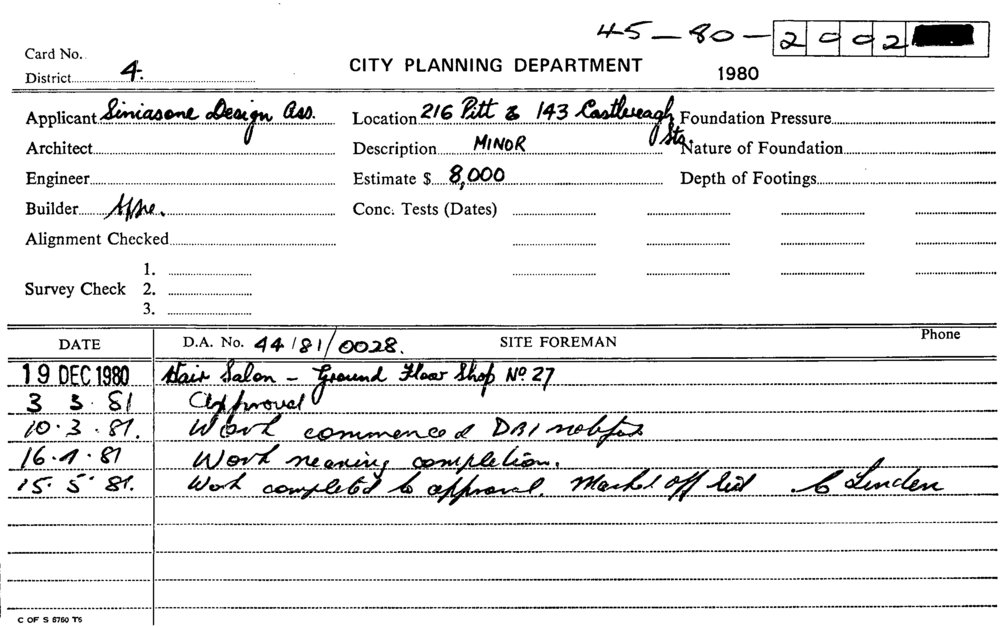 45-80-2002
Card No.
District 4.
CITY PLANNING DEPARTMENT
1980
Applicant Siniasone Design Ass.
Location 216 Pitt & 143 Castlereagh Sts
Foundation Pressure
Architect
Description MINOR
Nature of Foundation
Engineer
Estimate $ 8,000
Depth of Footings
Builder
Conc. Tests (Dates)
Alignment Checked
Survey Check
1.
2.
3.
DATE
D.A. No. 44/81/0028.
SITE FOREMAN
Phone
19 DEC 1980 Hair Salon - Ground Floor Shop No 27
3 3. 81 Approval
10.3.81. Work commenced
16.4.81 Work nearing completion.
15.5.81. Work completed to approval. Marked off list C Linden
C OF S 6760 T5